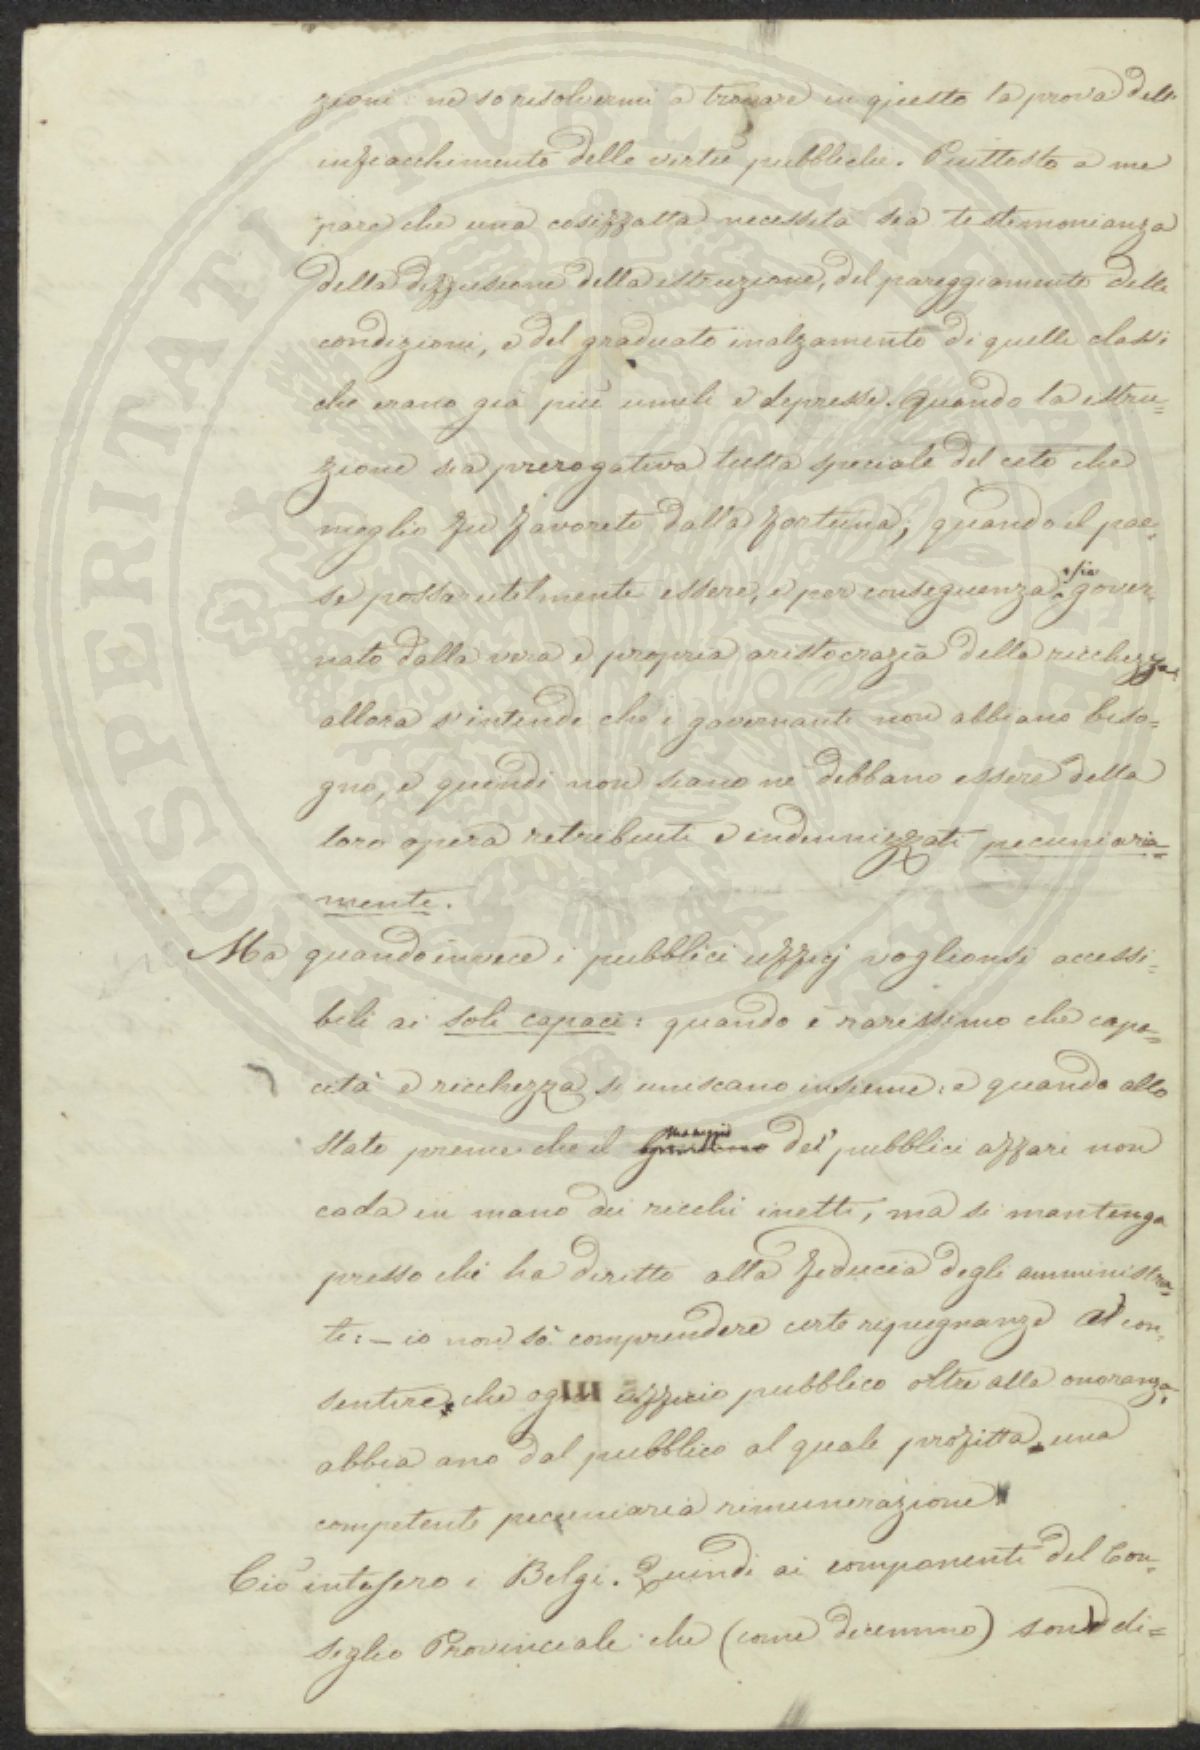 zioni: ne so risolvermi a trovare in questo la prova dell'
infiacchimento delle virtù pubbliche. Piuttosto a me
pare che una cosiffatta necessità sia testimonianza
della diffusione della istruzione, del pareggiamento delle
condizioni, e del graduato inalzamento di quelle classi
che erano già più umili e depresse. Quando la istru=
zione sia prerogativa tutta speciale del ceto che
meglio fu favorito dalla fortuna; quando il pae=
se possa utilmente essere, e per conseguenza sia gover=
nato dalla vera e propria aristocrazia della ricchezza,
allora s'intende che i governanti non abbiano biso=
gno, e quindi non siano ne debbano essere della
loro opera retribuiti e indennizzati pecuniaria=
mente.
Ma quando invece i pubblici uffizj voglionsi accessi=
bili ai soli capaci: quando è rarissimo che capa=
cità e ricchezza si uniscano insieme: e quando allo
stato preme che il maneggio dei pubblici affari non
cada in mano dei ricchi inetti, ma si mantenga
presso chi ha diritto alla fiducia degli amministra=
ti: — io non sò comprendere certe ripugnanze a con=
sentire, che ogni uffizio pubblico oltre alla onoranza,
abbia ano dal pubblico al quale profitta, una
competente pecuniaria rimunerazione.
Ciò intesero i Belgi. Quindi ai componenti del Con=
siglio Provinciale che (come dicemmo) sono di=
PROSPERITATI PVBLICAE AVGENDAE